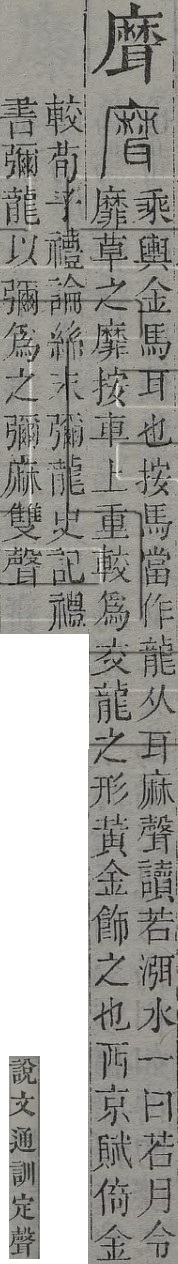 𦗕𦗕
乘輿金馬耳也按馬當作龍从耳麻聲讀若渳水一曰若月令
靡草之靡按車上重較爲交龍之形黃金飾之也西京賦倚金
較荀子禮論絲末彌龍史記禮
書彌龍以彌爲之彌麻雙聲
說文通訓定聲